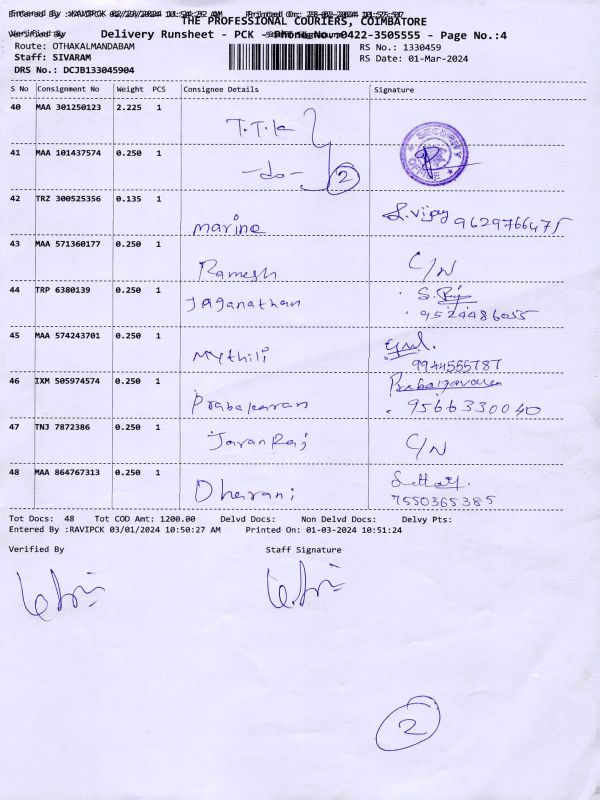 THE PROFESSIONAL COURIERS, COIMBATORE
Delivery Runsheet - PCK - Phone No. 0422-3505555 - Page No.:4
Route: OTHAKALMANDABAM RS No.: 1330459
Staff: SIVARAM RS Date: 01-Mar-2024
DRS No.: DCJB133045904
S No Consignment No Weight PCS Consignee Details Signature
40 MAA 301250123 2.225 1 T.T.K
SECURITY OFFICE
41 MAA 101437574 0.250 1 -do- 2
42 TRZ 300525356 0.135 1 marine S.vijay 9629766475
43 MAA 571360177 0.250 1 Ramesh C/N
44 TRP 6380139 0.250 1 Jaganathan
9524486055
45 MAA 574243701 0.250 1 Mythili
9944555787
46 IXM 505974574 0.250 1 Prabakaran Prabakaran
9566330040
47 TNJ 7872386 0.250 1 C/N
48 MAA 864767313 0.250 1 Dharani
7550365385
Tot Docs: 48 Tot COD Amt: 1200.00 Delvd Docs: Non Delvd Docs: Delvy Pts:
Entered By :RAVIPCK 03/01/2024 10:50:27 AM Printed On: 01-03-2024 10:51:24
Verified By Staff Signature
2